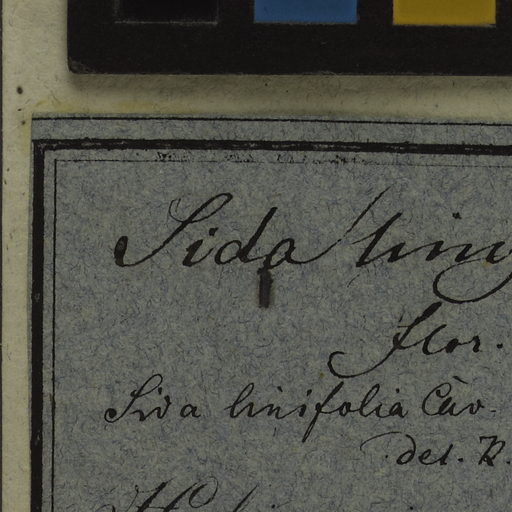 Sida
flor.
Sida linifolia Cav.
det. K.